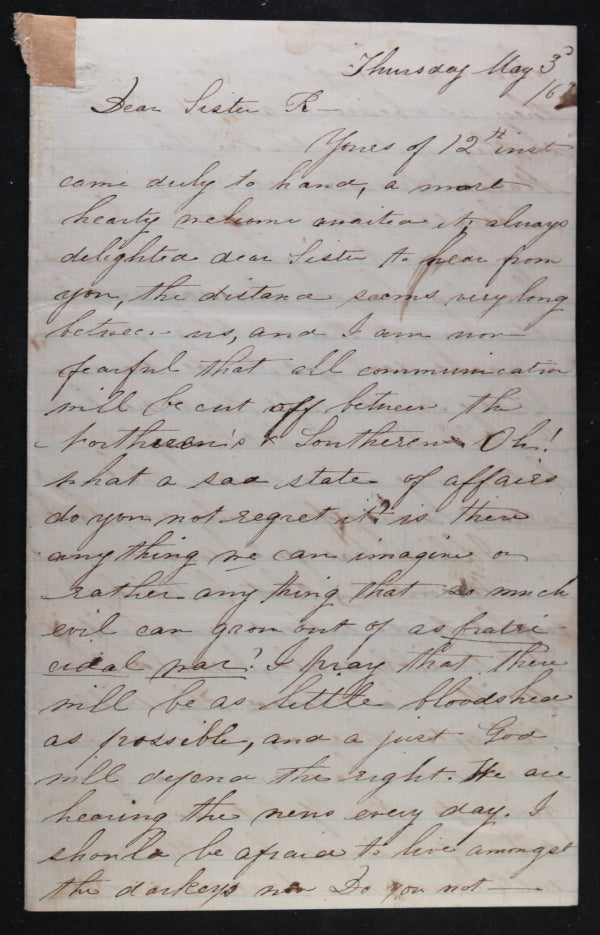 Thursday May 3d
/61
Dear Sister R—
Yours of 12th inst
came duly to hand, a most
hearty welcome awaited it, always
delighted dear Sister to hear from
you, the distance seems very long
between us, and I am now
fearful that all communication
will be cut off between the
Northeren's & Southeren. Oh!
what a sad state of affairs
do you not regret it? is there
any thing we can imagine or
rather any thing that so much
evil can grow out of as fratri-
cidal war? I pray that there
will be as little bloodshed
as possible, and a just God
will defend the right. We are
hearing the news every day. I
should be afraid to live amongst
the darkeys now Do you not —